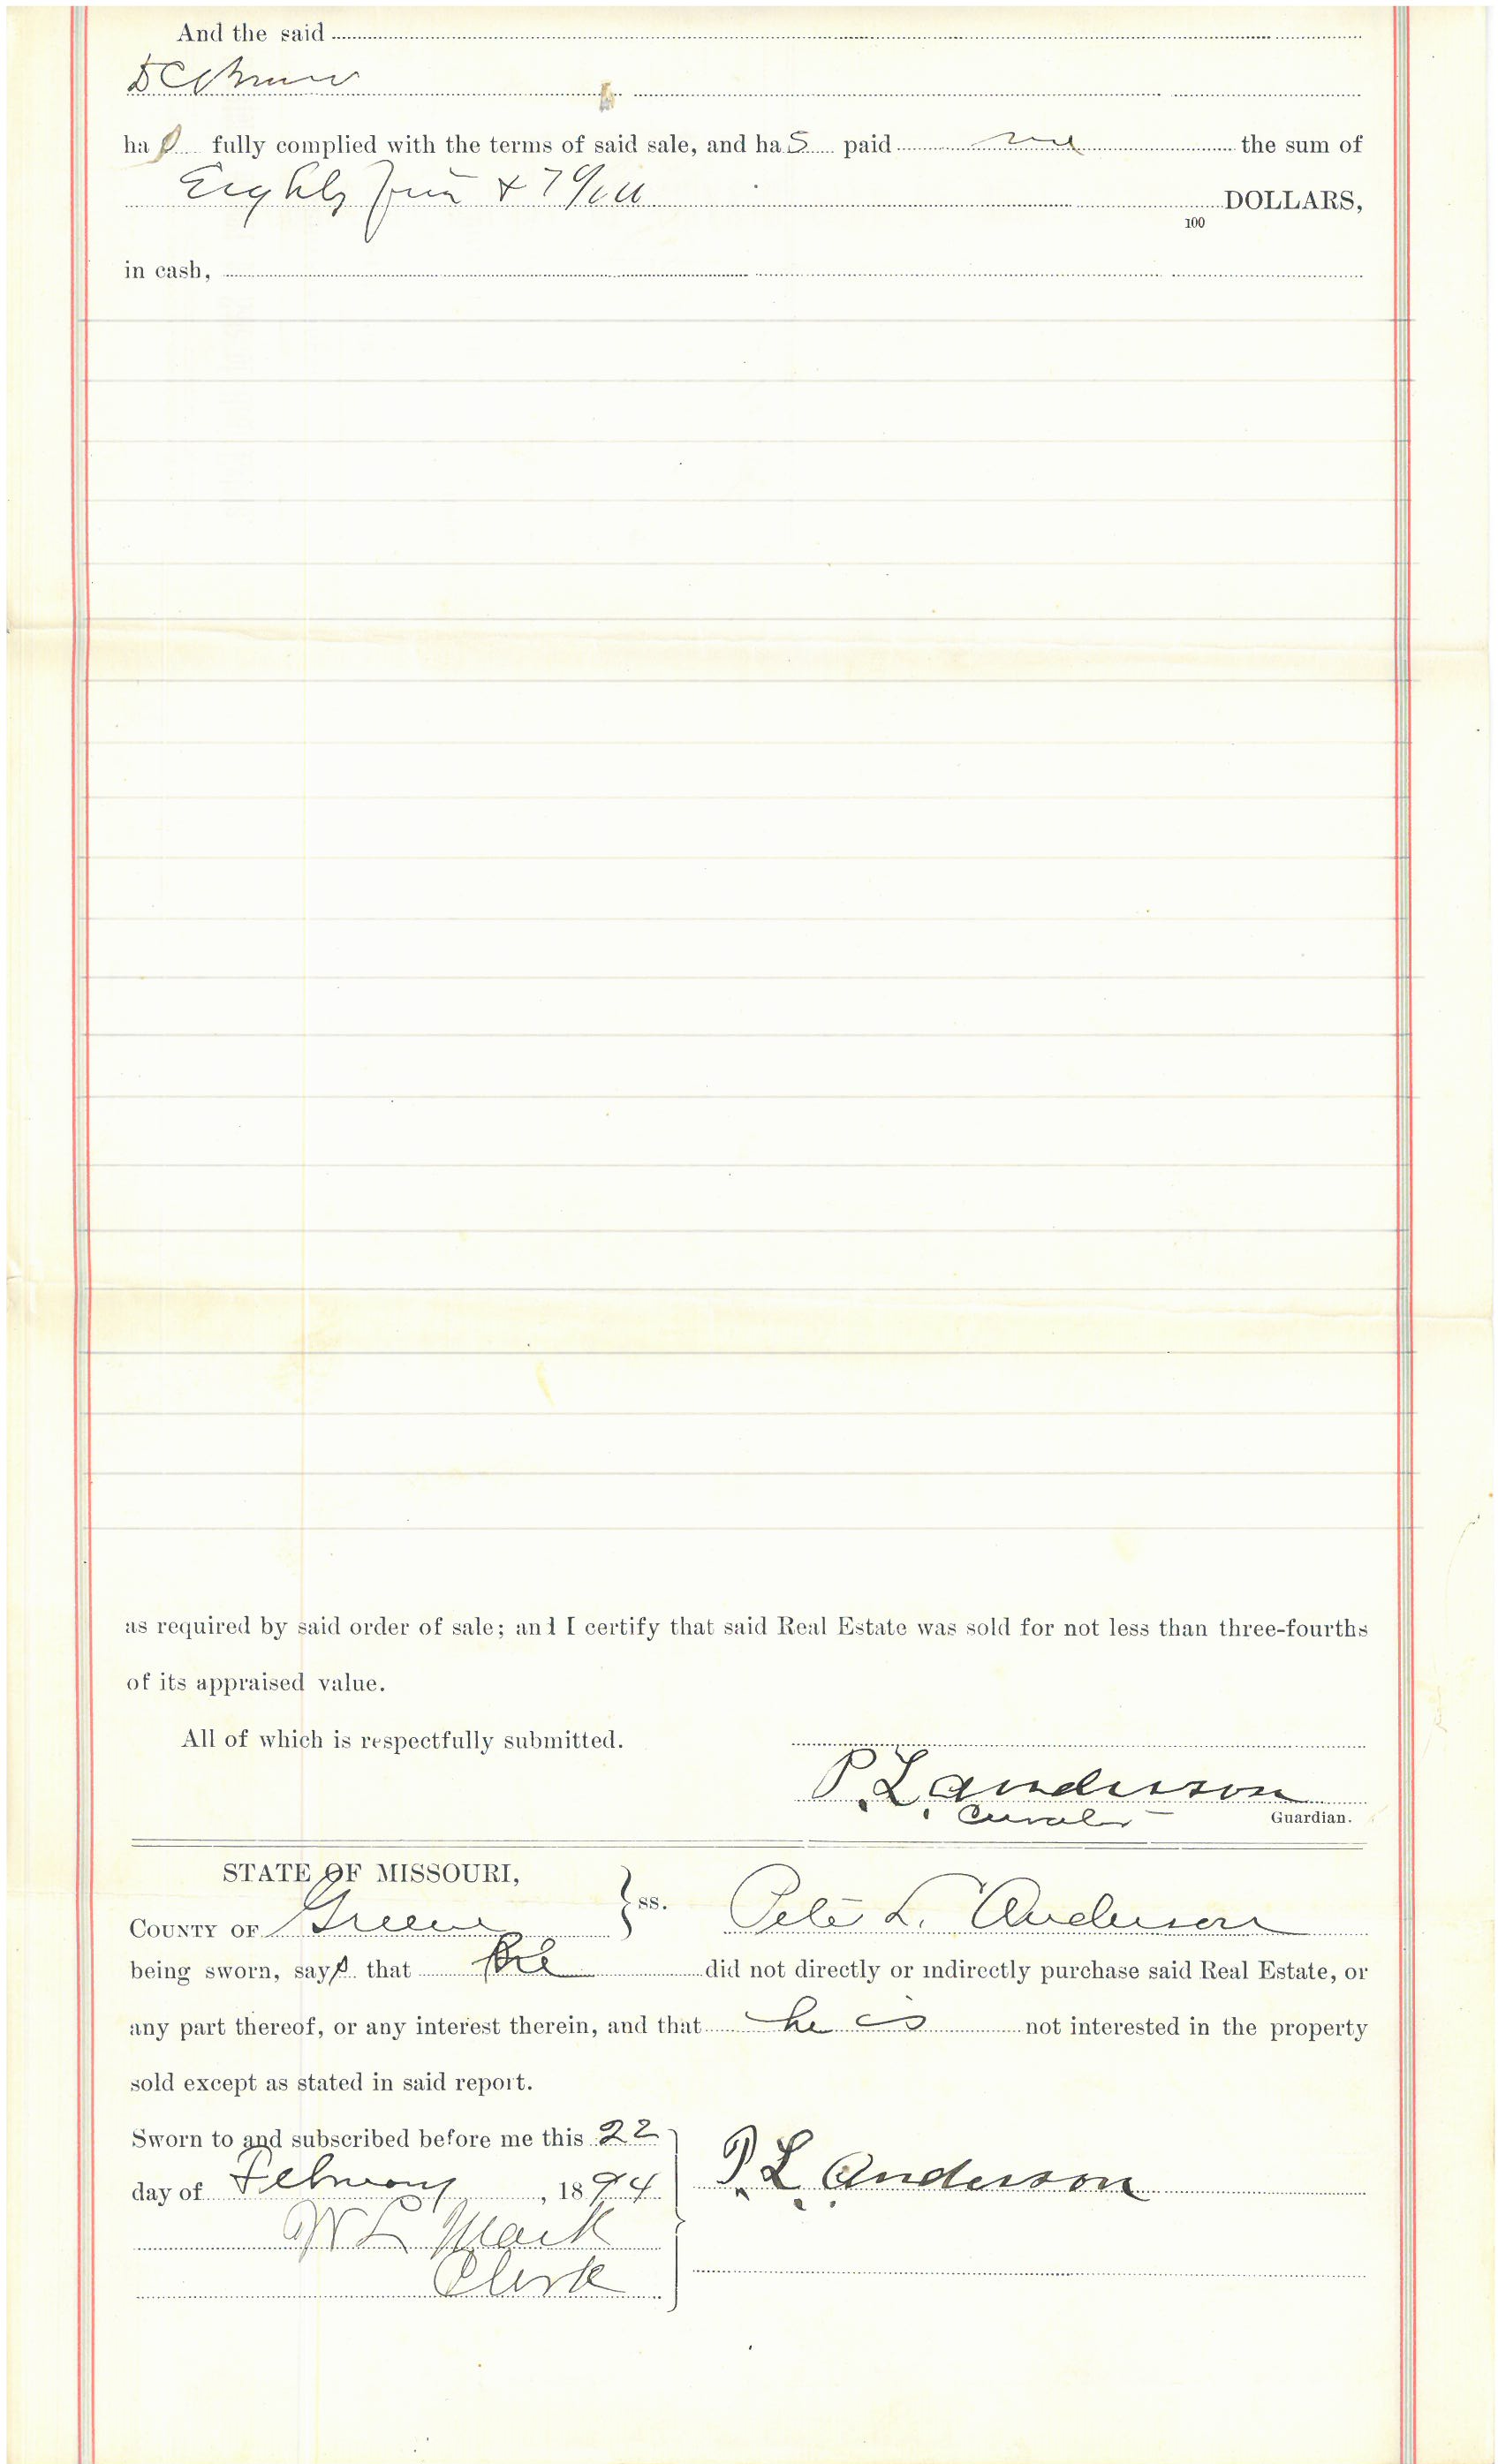 And the said
ha s fully complied with the terms of said sale, and has paid me the sum of
Eighty & 7 /100 DOLLARS,
100
in cash,
as required by said order of sale; and I certify that said Real Estate was sold for not less than three-fourths
of its appraised value.
All of which is respectfully submitted.
P. L. Anderson
Curator Guardian.
STATE OF MISSOURI,
COUNTY OF Greene } ss. Pete L. Anderson
being sworn, says that he did not directly or indirectly purchase said Real Estate, or
any part thereof, or any interest therein, and that he is not interested in the property
sold except as stated in said report.
Sworn to and subscribed before me this 22
day of February, 1894 P. L. Anderson
Clerk